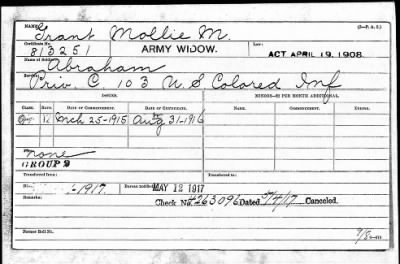 NAME: Grant Mollie M. (3-P. A. 2.)
Certificate No. 813251 ARMY WIDOW. Law: ACT APRIL 19, 1908.
Name of Soldier: Abraham
Service: Priv. C, 103 U S Colored Inf
ISSUES. MINORS—$2 PER MONTH ADDITIONAL.
CLASS. RATE. DATE OF COMMENCEMENT. DATE OF CERTIFICATE. DATE OF COMMENCEMENT.
12 Mch 25-1915 Aug 31-1916
None
GROUP 2
Transferred from:
-1917. Bureau notified MAY 12 1917
Remarks: Check No. 4263096 Dated 5/4/17 Canceled.
Former Roll No.